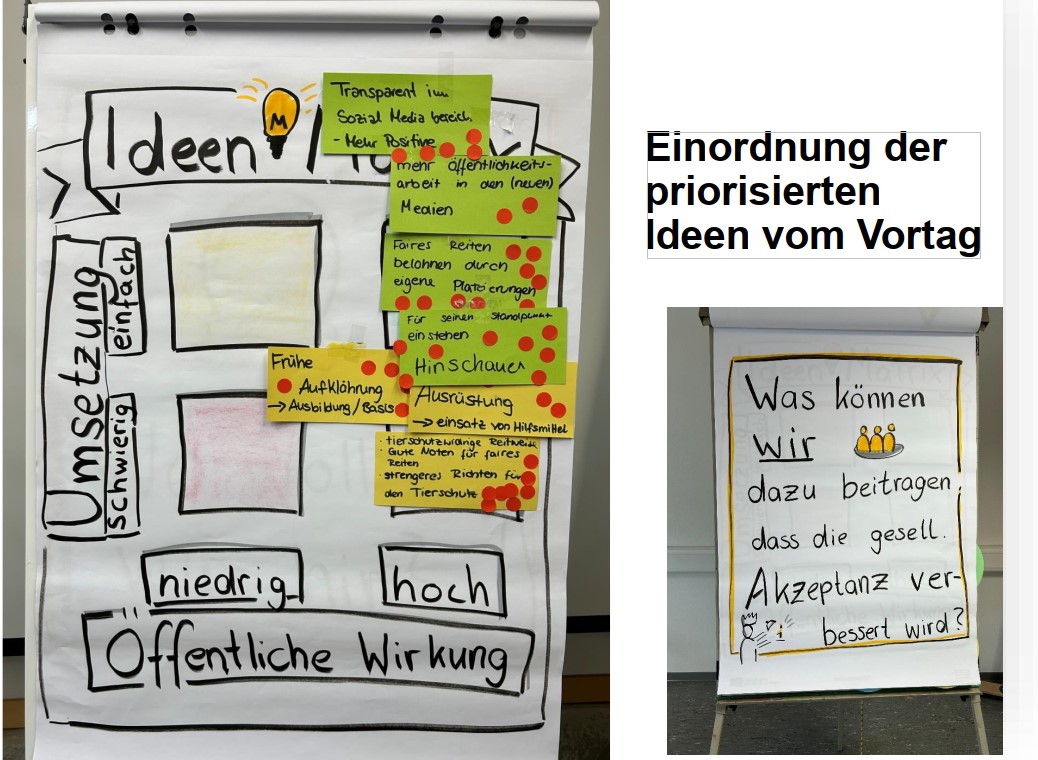 Ideen
Transparent im
Sozial Media bereich.
- Mehr Positive
mehr öffentlichkeits-
arbeit in den (neuen)
Medien
Faires Reiten
belohnen durch
eigene Platzierungen
Für seinen Standpunkt
einstehen
Hinschauen
Frühe
Aufklährung
→ Ausbildung/Basis
Ausrüstung
→ einsatz von Hilfsmittel
· tierschutzwidrige
· Gute Noten für faires
Reiten
· strengeres Richten für
den Tierschutz
Umsetzung
einfach
schwierig
niedrig
hoch
Öffentliche Wirkung
Einordnung der
priorisierten
Ideen vom Vortag
Was können
wir
dazu beitragen,
dass die gesell.
Akzeptanz ver-
bessert wird?